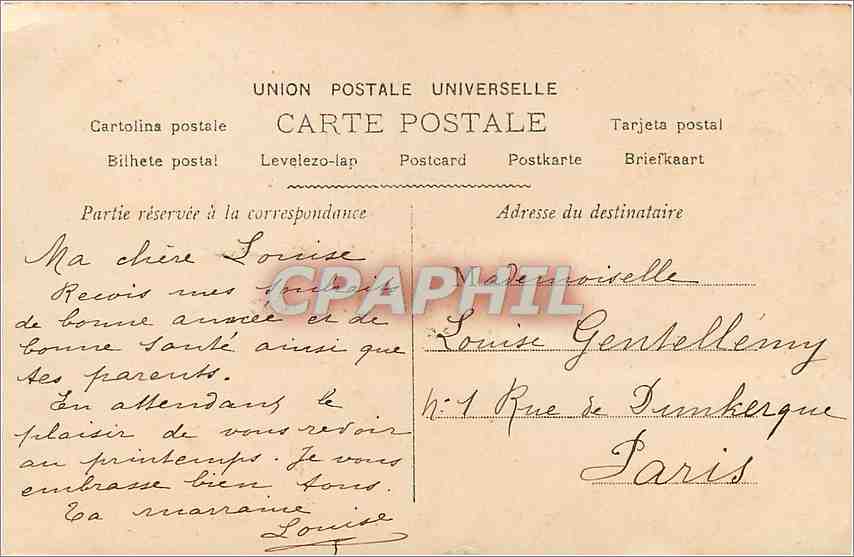 UNION POSTALE UNIVERSELLE
Cartolina postale CARTE POSTALE Tarjeta postal
Bilhete postal Levelezo-lap Postcard Postkarte Briefkaart
Partie réservée à la correspondance
Ma chère Louise
Recois mes souhaits
de bonne année et de
bonne santé ainsi que
tes parents.
En attendant le
plaisir de vous revoir
au printemps. Je vous
embrasse bien tous.
Ta marraine
Louise
Adresse du destinataire
Mademoiselle
Louise Gentellémy
N° 1 Rue de Dunkerque
Paris
CPAPHIL